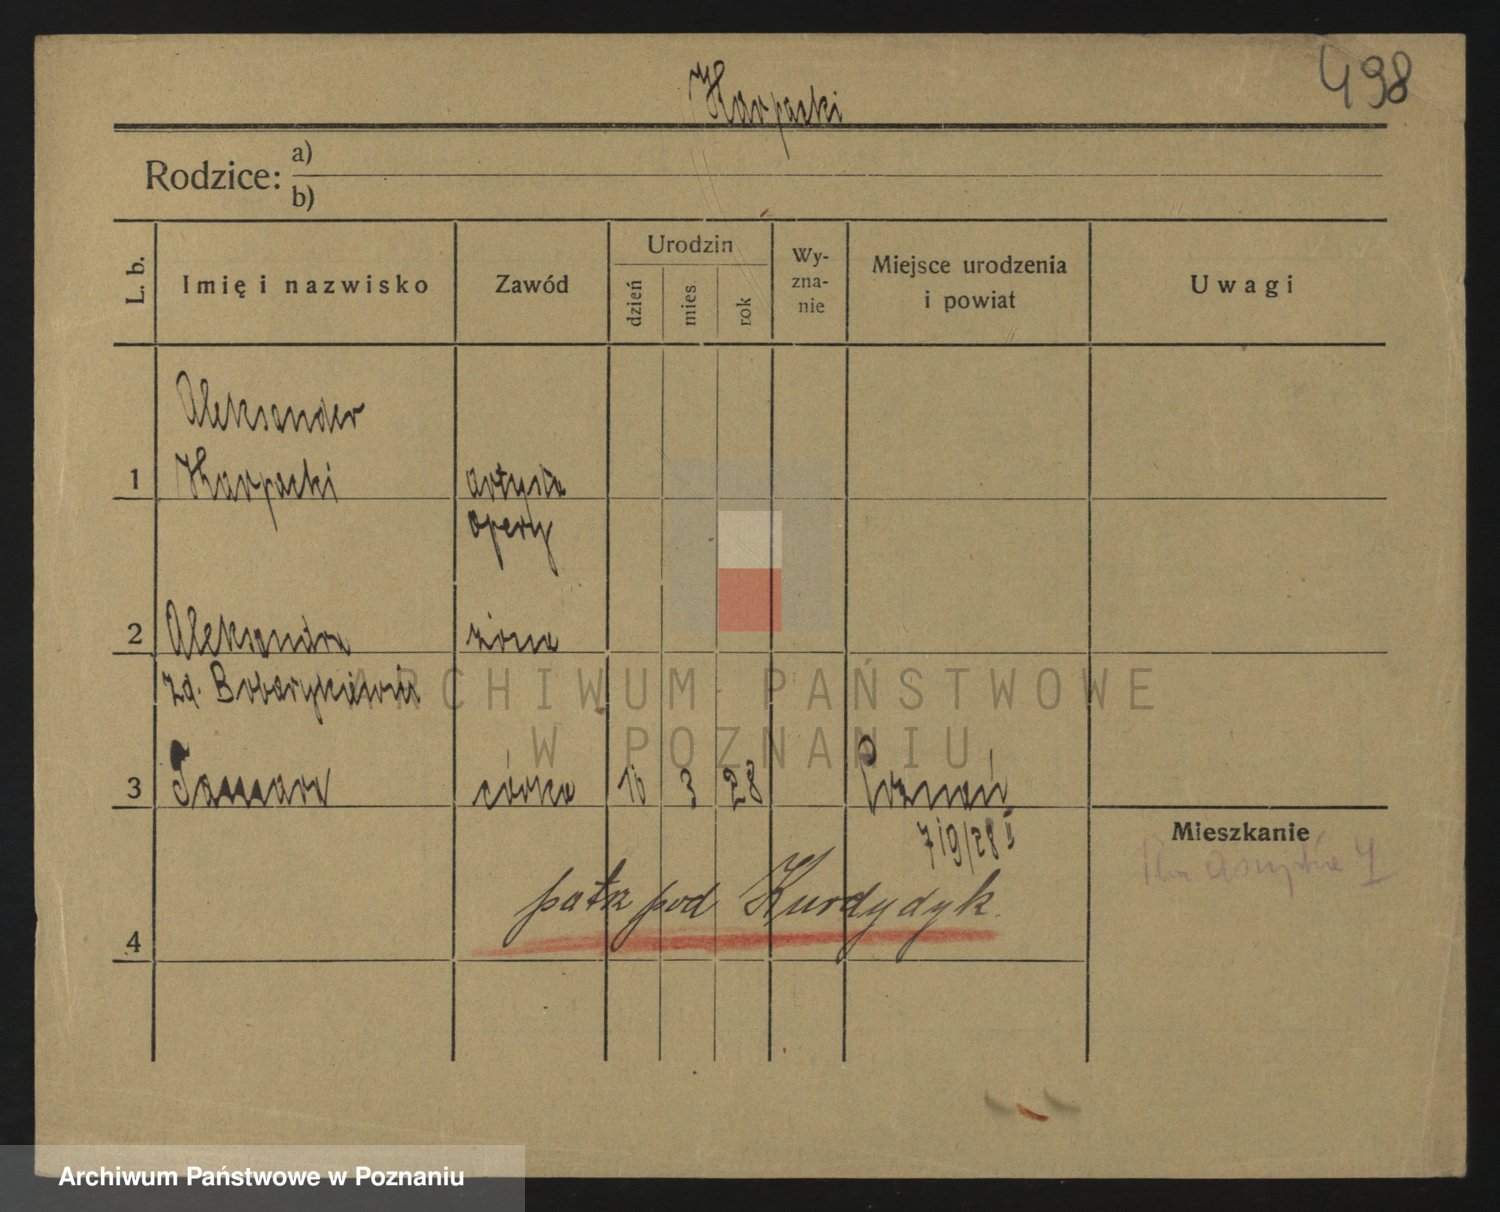 498
Karpacki
Rodzice: a)
b)
L. b.
Imię i nazwisko
Zawód
Urodzin
dzień
mies
rok
Wy-
zna-
nie
Miejsce urodzenia
i powiat
Uwagi
Aleksander
1 Karpacki artysta
opery
2 Aleksandra żona
zd.
ARCHIWUM PAŃSTWOWE
W POZNANIU
3 Tamara córka 16 3 28 Poznań
7/9/28
Mieszkanie
patrz pod Kurdydyk.
4
Archiwum Państwowe w Poznaniu